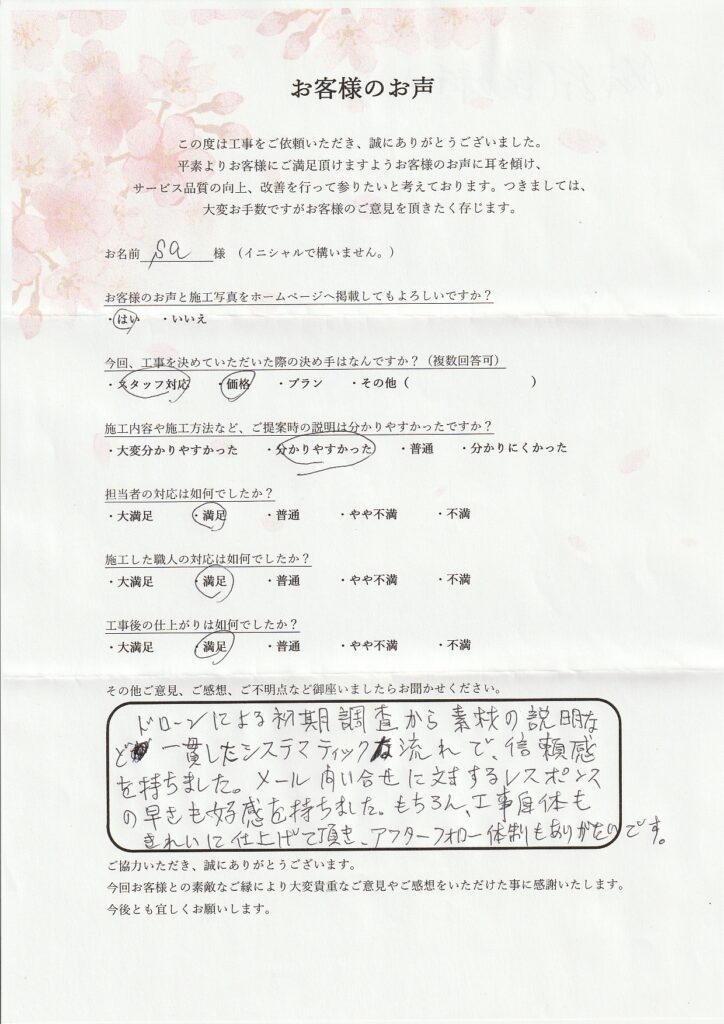 お客様のお声
この度は工事をご依頼いただき、誠にありがとうございました。
平素よりお客様にご満足頂けますようお客様のお声に耳を傾け、
サービス品質の向上、改善を行って参りたいと考えております。つきましては、
大変お手数ですがお客様のご意見を頂きたく存じます。
お名前 Sa 様 （イニシャルで構いません。）
お客様のお声と施工写真をホームページへ掲載してもよろしいですか？
・はい ・いいえ
今回、工事を決めていただいた際の決め手はなんですか？（複数回答可）
・スタッフ対応 ・価格 ・プラン ・その他（ ）
施工内容や施工方法など、ご提案時の説明は分かりやすかったですか？
・大変分かりやすかった ・分かりやすかった ・普通 ・分かりにくかった
担当者の対応は如何でしたか？
・大満足 ・満足 ・普通 ・やや不満 ・不満
施工した職人の対応は如何でしたか？
・大満足 ・満足 ・普通 ・やや不満 ・不満
工事後の仕上がりは如何でしたか？
・大満足 ・満足 ・普通 ・やや不満 ・不満
その他ご意見、ご感想、ご不明点など御座いましたらお聞かせください。
ドローンによる初期調査から素材の説明な
ど 一貫したシステスティックな流れで、信頼感
を持ちました。メール問い合せに対するレスポンス
の早さも好感を持ちました。もちろん、工事自体も
きれいに仕上げて頂き、アフターフォロー体制もありがたいです。
ご協力いただき、誠にありがとうございます。
今回お客様との素敵なご縁により大変貴重なご意見やご感想をいただけた事に感謝いたします。
今後とも宜しくお願いします。